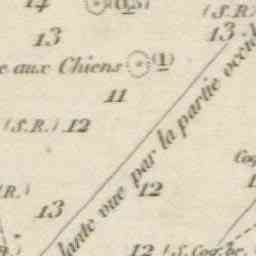 14
(S.R.)
13
13
e aux Chiens (1)
11
(S.R.) 12
lante vue par la partie occi
12
R.)
13
12 (S. Coq. br.